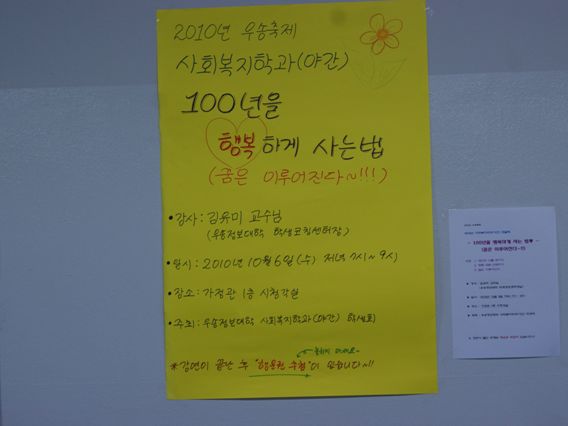 2010년 우송축제
사회복지학과(야간)
100년을
행복하게 사는법
(꿈은 이루어진다~!!!)
• 강사: 김유미 교수님
(우송정보대학 학생코칭센터장)
• 일시: 2010년 10월 6일(수) 저녁 7시~9시
• 장소: 가정관 1층 시청각실
• 주최: 우송정보대학 사회복지학과(야간) 학생회
놓치지 마세요~
* 강연이 끝난 후 "행운권 추첨"이 있습니다~!!
~ 100년을 행복하게 사는 법 ~
(꿈은 이루어진다~!!)